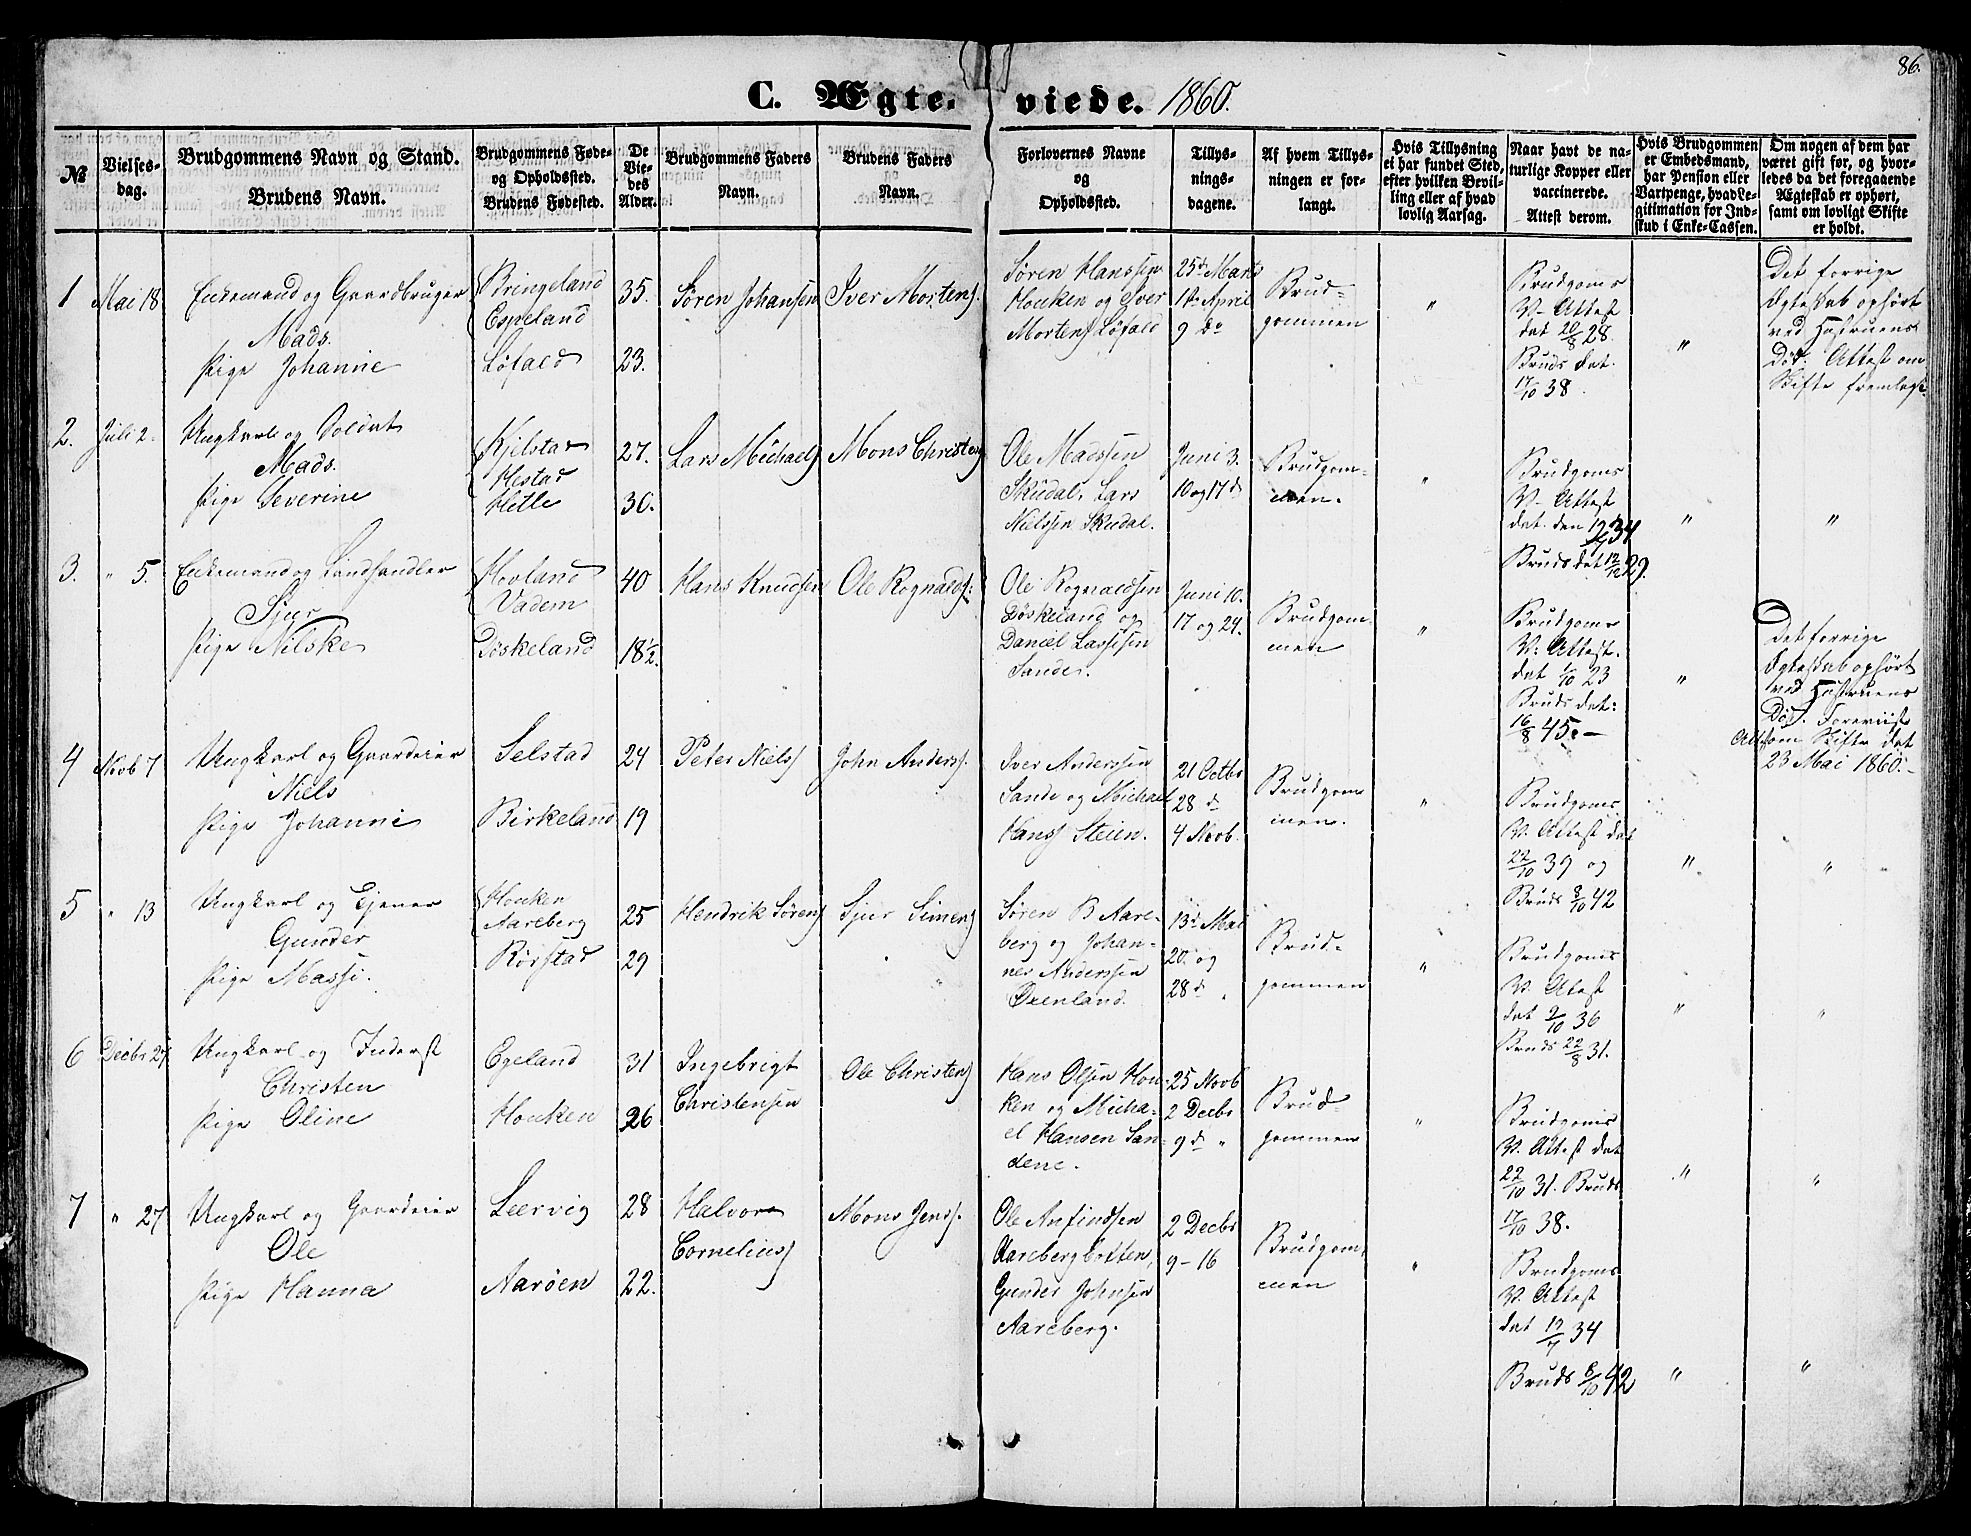 86.
C. Ægteviede. 1860.
№
Vielsesdag.
Brudgommens Navn og Stand.
Brudens Navn.
Brudgommens Føde-
og Opholdssted.
Brudens Fødested.
De
Vie-
des
Alder.
Brudgommens Faders
Navn.
Brudens Faders
Navn.
Forlovernes Navne
og
Opholdssted.
Tillys-
nings-
dagene.
Af hvem Tillys-
ningen er for-
langt.
Hvis Tillysning
ei har fundet Sted,
efter hvilken Bevil-
ling eller af hvad
lovlig Aarsag.
Naar havt de na-
turlige Kopper eller
vaccinerede.
Attest derom.
Hvis Brudgommen
er Embedsmand,
har Pension eller
Vartpenge, hvad Le-
gitimation for Ind-
skud i Enke-Cassen.
Om nogen af dem har
været gift før, og hvor-
ledes da det foregaaende
Ægteskab er ophørt,
samt om lovligt Skifte
er holdt.
1 Mai 18 Enkemand og Gaardbruger
Mads.
Pige Johanne
Bringeland
Espeland
Løfald
35.
23.
Søren Johansen
Iver Mortens.
Søren Hanssen
Houken og Iver
Mortens Løfald
25d Marts
1ste April
9 do
Brud-
gommen
"
Brudgoms
V- Attest
dat 20/8 28.
Bruds dat.
17/10 38.
"
Det forrige
Ægteskab ophørt
ved Hustruens
Død. Attest om
Skifte fremlagt.
2. Juli 2. Ungkarl og Soldat
Mads.
Pige Severine
Kjilstad
Hestad
Hetle
27.
30.
Lars Michaels
Mons Christens
Ole Madssen
Skudal, Lars
Nielssen Skudal.
Juni 3.
10 og 17 d
Brudgom-
men.
"
Brudgoms
V- Attest
dat. den 12/7 34
Bruds dat 12/12 29.
"
"
3. " 5. Enkemand og Landhandler
Sjur
Pige Nilske
Hovland
Vadem
Døskeland
40
18½.
Hans Knudsen
Ole Rognalds.
Ole Rognaldsen
Døskeland og
Daniel Lassesen
Sande.
Juni 10.
17 og 24.
Brudgom-
men
"
Brudgoms
V. Attest.
dat 1/10 23
Bruds dat:
16/8 45. -
"
Det forrige
Ægteskab ophørt
ved Hustruens
Død. Foreviist
Attest om Skifte dat
23 Mai 1860. -
4 Novb 7 Ungkarl og Gaardeier
Niels
Pige Johanne
Selstad
Birkeland
24
19
Peter Niels
John Anders.
Iver Anderssen
Sande og Michael
Hans Steien.
21 Octbr
28 d
4 Novb.
Brudgom
men.
"
Brudgoms
V. Attest dat
22/10 39 og
Bruds 8/10 42
"
"
5 " 13 Ungkarl og Tjener
Gunder
Pige Massi.
Houken
Aareberg
Rørstad
25
29
Hendrik Sørens
Sjur Simens
Søren B Aare-
berg og Johan-
nes Anderssen
Oxenland.
13d Mai
20. og
28 d
Brud-
gommen
"
Brudgoms
V. Atest
dat 9/10 36
Bruds 22/8 31.
"
"
6 Decbr 27 Ungkarl og Inderst
Christen
Pige Oline
Egeland
Houken
31
26
Ingebrigt
Christensen
Ole Christens
Hans Olsen Hou-
ken og Micha-
el Hansen San-
dene.
25 Novb
2 Decbr
9 d "
Brud-
gommen
"
Brudgoms
V. Attest dat
22/10 31. Bruds
17/10 38.
"
"
7 " 27 Ungkarl og Gaardeier
Ole
Pige Hanna
Leervig
Aarøen
28
22.
Halvor
Cornelius
Mons Jens.
Ole Anfindsen
Aarebergbotten,
Gunder Johnsen
Aareberg.
2 Decbr
9 - 16
Brudgom-
men
"
Brudgoms
V. Attest
dat 12/7 34
Bruds 8/10 42
"
"